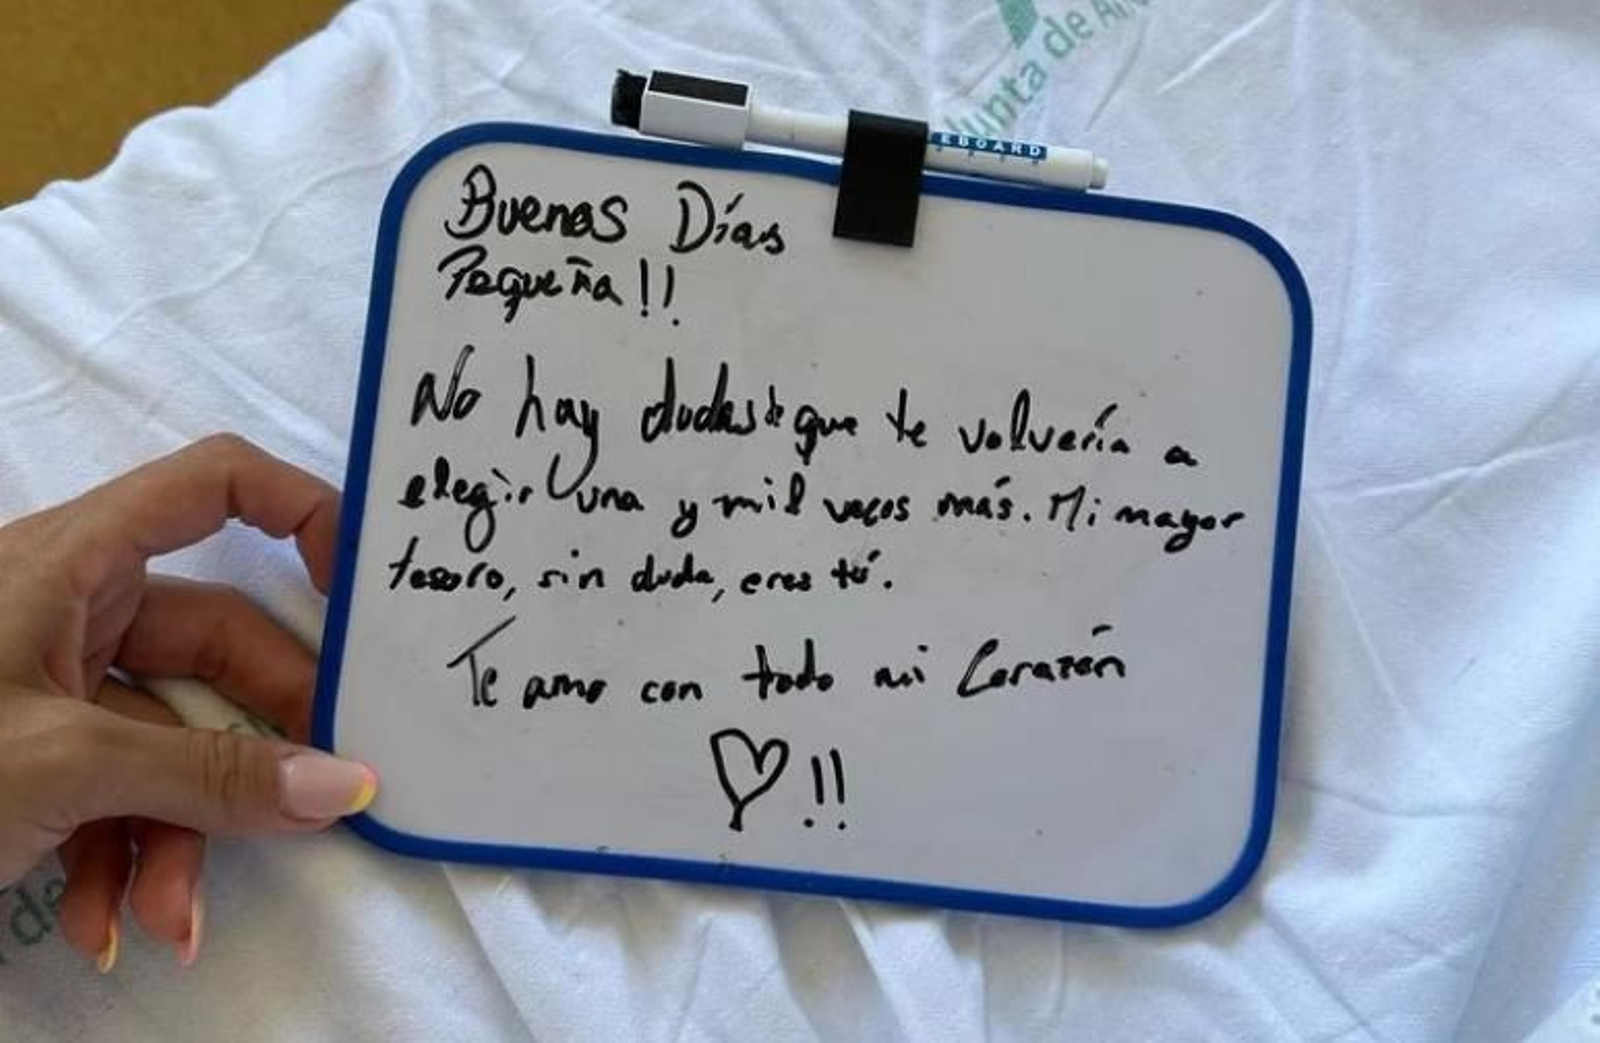 Junta de An
EBOARD
Buenos Días
Pequeña!!
No hay dudas de que te volvería a
elegir una y mil veces más. Mi mayor
tesoro, sin duda, eres tú.
Te amo con todo mi Corazón
♡!!
de